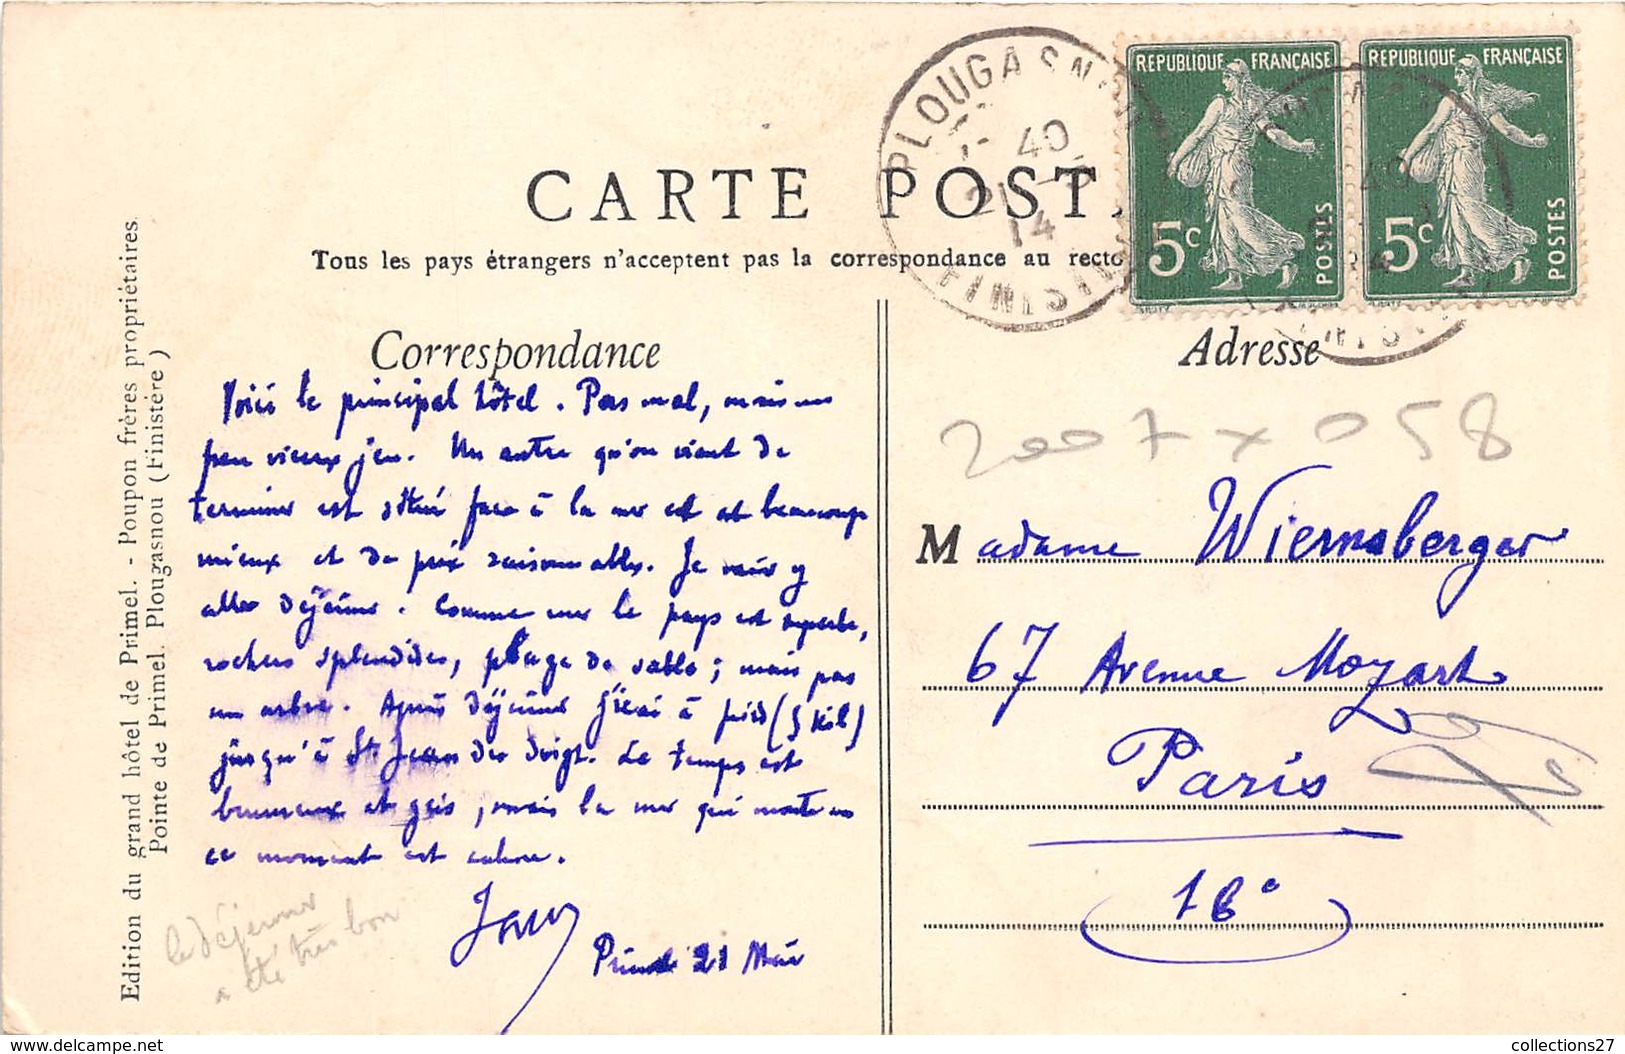 CARTE POST
Tous les pays étrangers n'acceptent pas la correspondance au recto
PLOUGASN
40
21 -5
14
FINIST
REPUBLIQUE FRANÇAISE
5c
POSTES
REPUBLIQUE FRANÇAISE
5c
POSTES
Edition du grand hôtel de Primel. - Poupon frères propriétaires
Pointe de Primel. Plougasnou (Finistère)
Correspondance
Voici le principal hôtel. Pas mal, mais un
peu vieux jeu. Un autre qu'on vient de
terminer est situé face à la mer et est beaucoup
mieux et de prix raisonnables. Je vais y
aller déjeuner. Comme mer le pays est superbe,
rochers splendides, plage de sable ; mais pas
un arbre. Après déjeuner j'irai à pied (5 kil)
jusqu'à St Jean du doigt. Le temps est
brumeux et gris, mais la mer qui monte en
ce moment est calme.
Primel 21 Mai
le déjeuner
a été très bon
Adresse
2007 x 058
Madame Wiernsberger
67 Avenue Mozart
Paris
16e
collections27